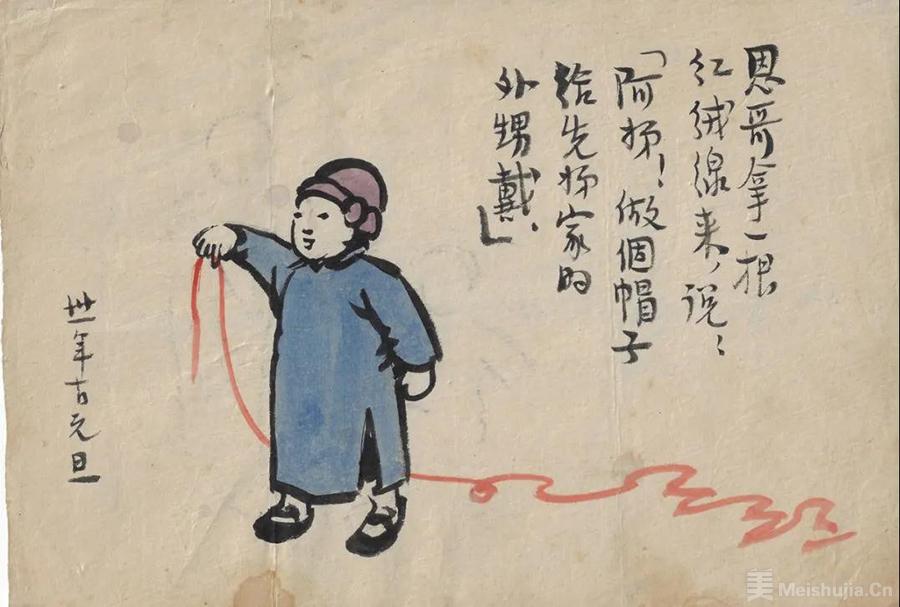 恩哥拿一根
红绒線来，说：
「阿姊！做個帽子
给先姊家的
外甥戴。」
卅一年古元旦
美 Meishujia.Cn